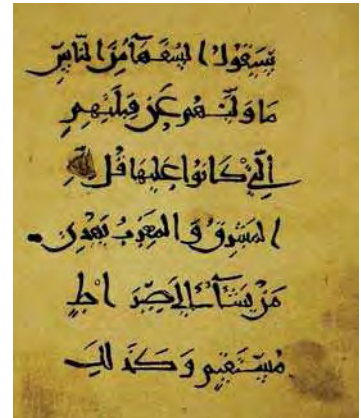 سيقول السفهاء من الناس
ما ولىهم عن قبلتهم
التى كانوا عليها قل لله
المشرق والمغرب يهدى
من يشاء الى صراط
مستقيم وكذلك